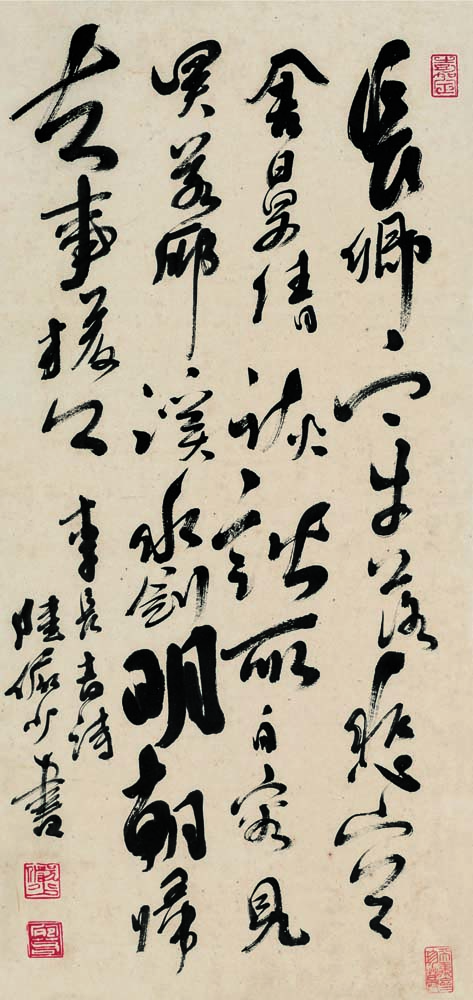 長卿牢落悲空
舍曼倩詼諧取自容見
買若耶溪水劍明朝歸
去事猨公 李長吉詩
陸儼少書